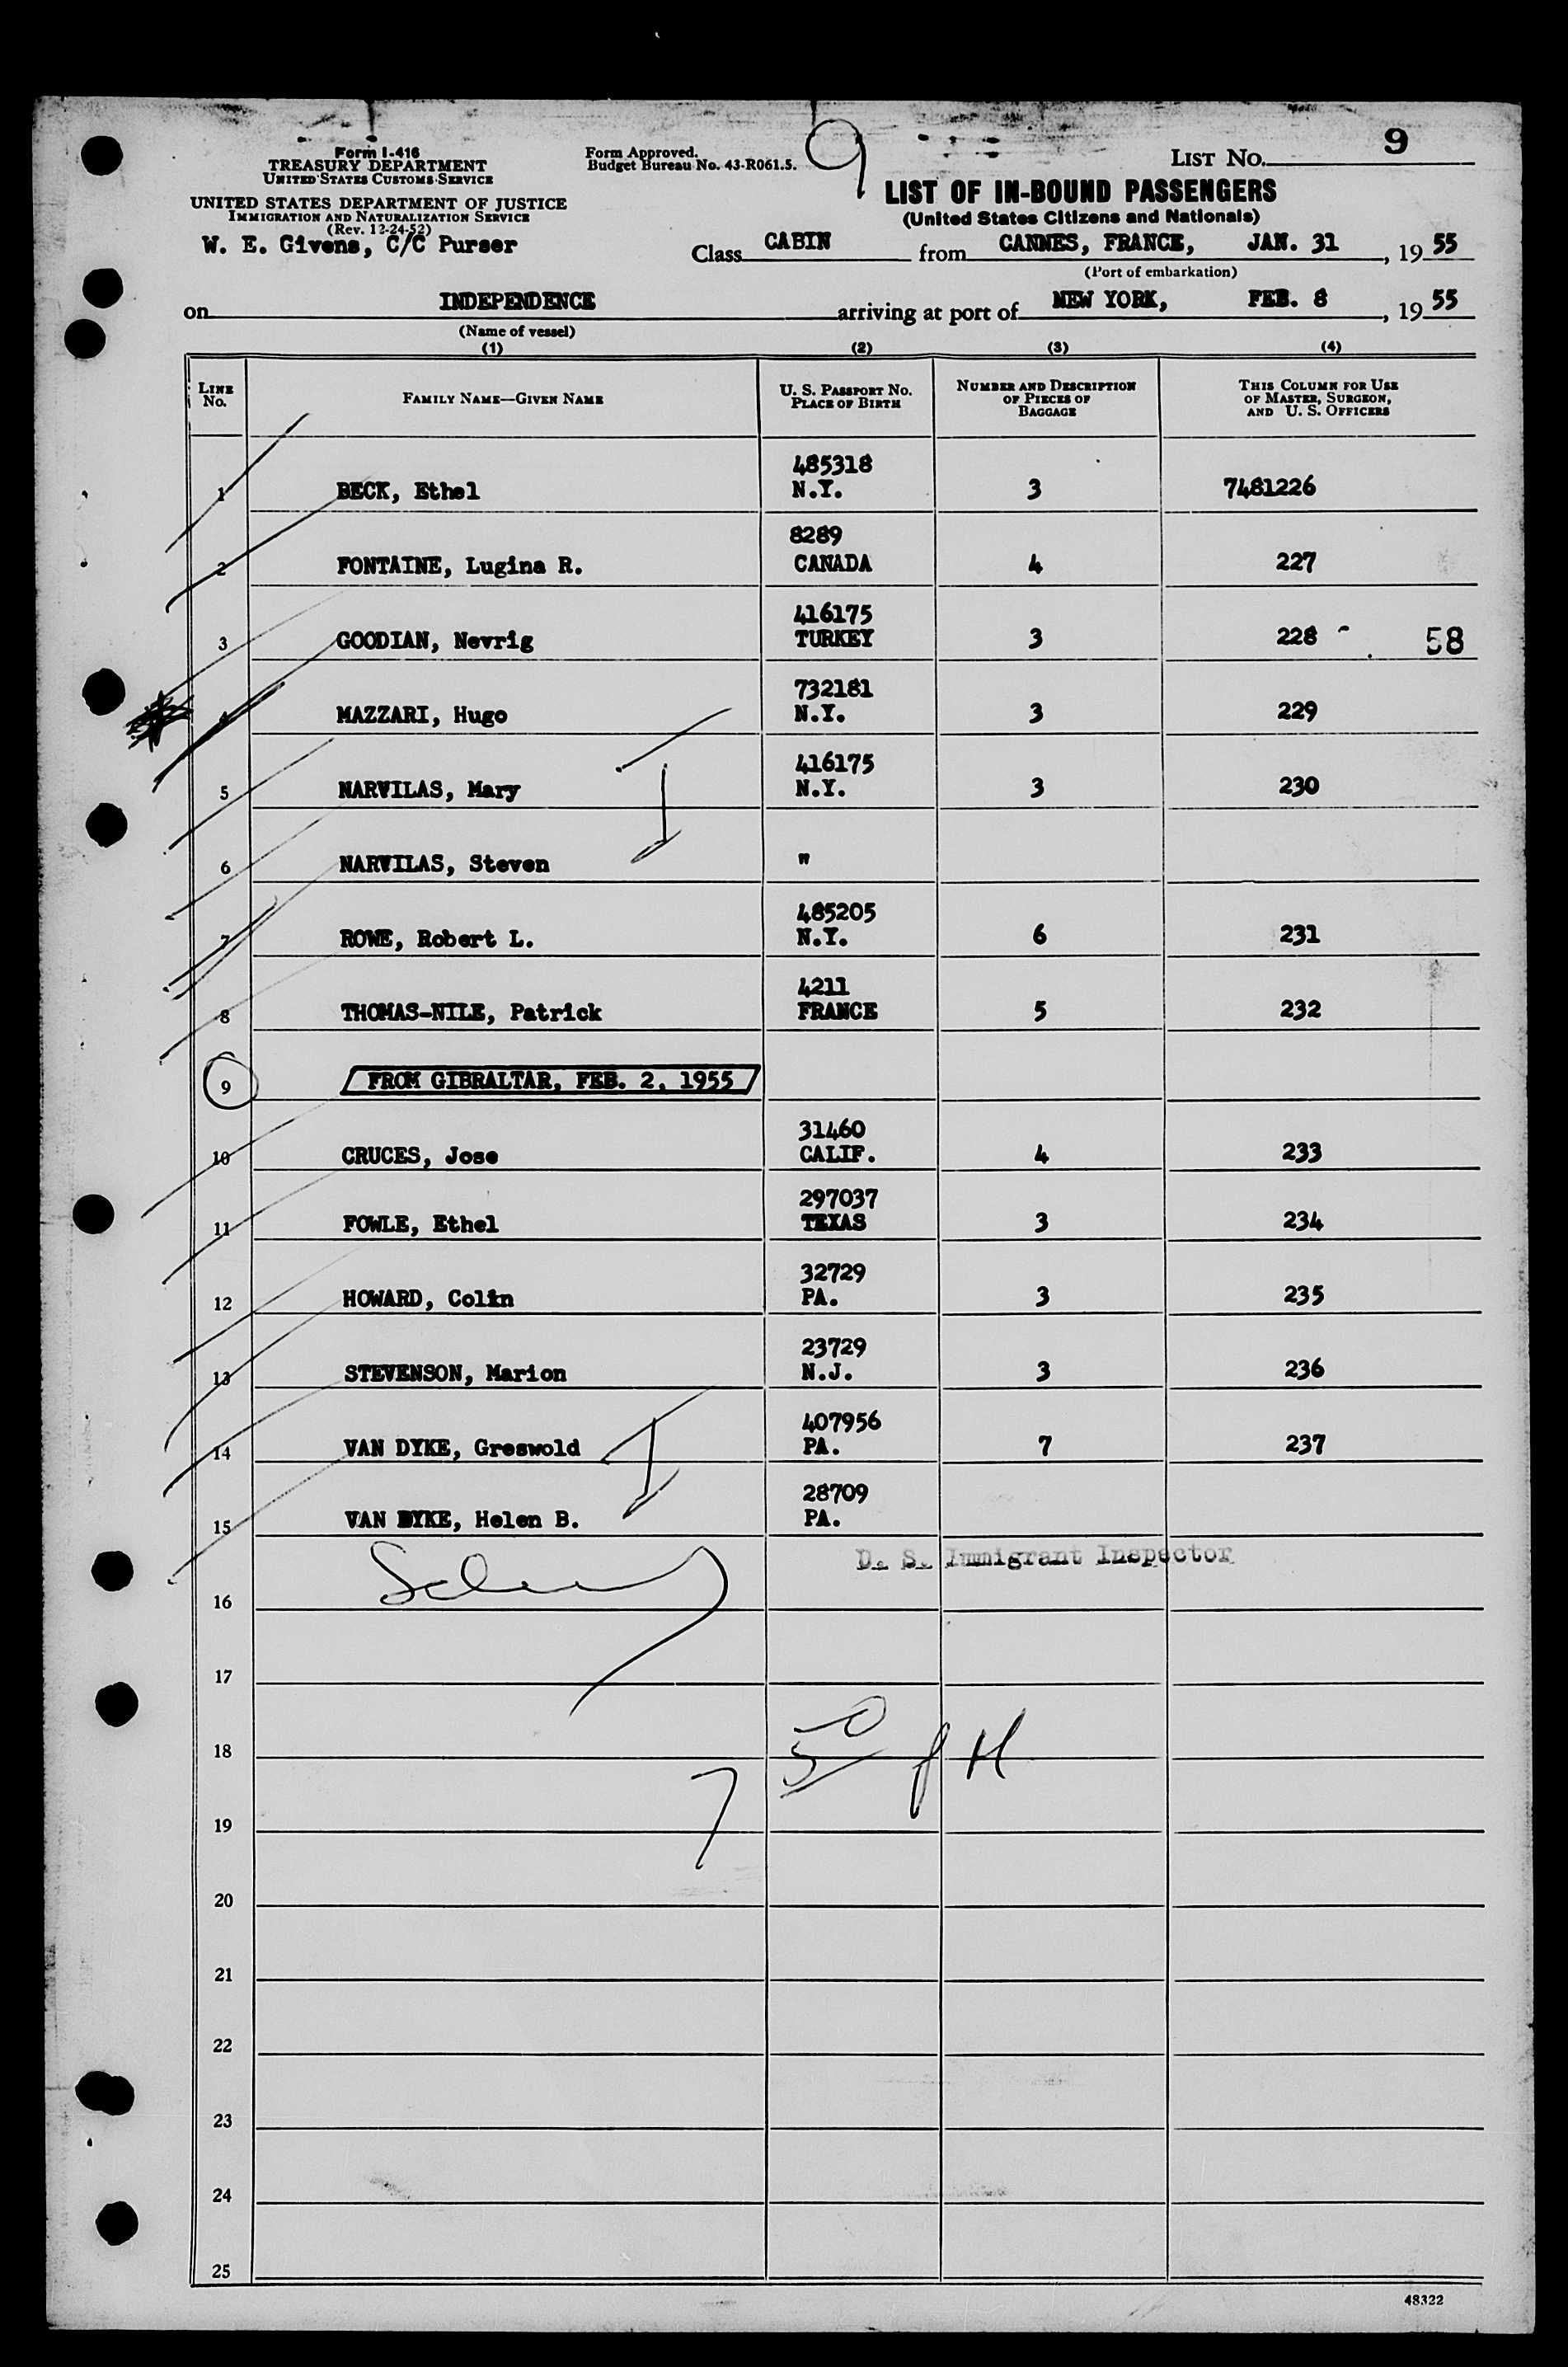 Form I-416
TREASURY DEPARTMENT
UNITED STATES CUSTOMS SERVICE
UNITED STATES DEPARTMENT OF JUSTICE
IMMIGRATION AND NATURALIZATION SERVICE
(Rev. 12-24-52)
W. E. Givens, C/C Purser
Form Approved.
Budget Bureau No. 43-R061.5.
9
LIST No. 9
LIST OF IN-BOUND PASSENGERS
(United States Citizens and Nationals)
Class CABIN from CANNES, FRANCE, JAN. 31, 1955
(Port of embarkation)
on INDEPENDENCE arriving at port of NEW YORK, FEB. 8, 1955
(Name of vessel)
(1) (2) (3) (4)
LINE No. FAMILY NAME—GIVEN NAME U. S. PASSPORT No. PLACE OF BIRTH NUMBER AND DESCRIPTION OF PIECES OF BAGGAGE THIS COLUMN FOR USE OF MASTER, SURGEON, AND U. S. OFFICERS
485318
1 BECK, Ethel N.Y. 3 7481226
8289
2 FONTAINE, Lugina R. CANADA 4 227
416175
3 GOODIAN, Nevrig TURKEY 3 228 58
732181
4 MAZZARI, Hugo N.Y. 3 229
416175
5 NARVILAS, Mary N.Y. 3 230
6 NARVILAS, Steven "
485205
7 ROWE, Robert L. N.Y. 6 231
4211
8 THOMAS-NILE, Patrick FRANCE 5 232
9 FROM GIBRALTAR, FEB. 2, 1955
31460
10 CRUCES, Jose CALIF. 4 233
297037
11 FOWLE, Ethel TEXAS 3 234
32729
12 HOWARD, Colin PA. 3 235
23729
13 STEVENSON, Marion N.J. 3 236
407956
14 VAN DYKE, Greswold PA. 7 237
28709
15 VAN DYKE, Helen B. PA.
U. S. Immigrant Inspector
16
17
18
19
20
21
22
23
24
25
48322